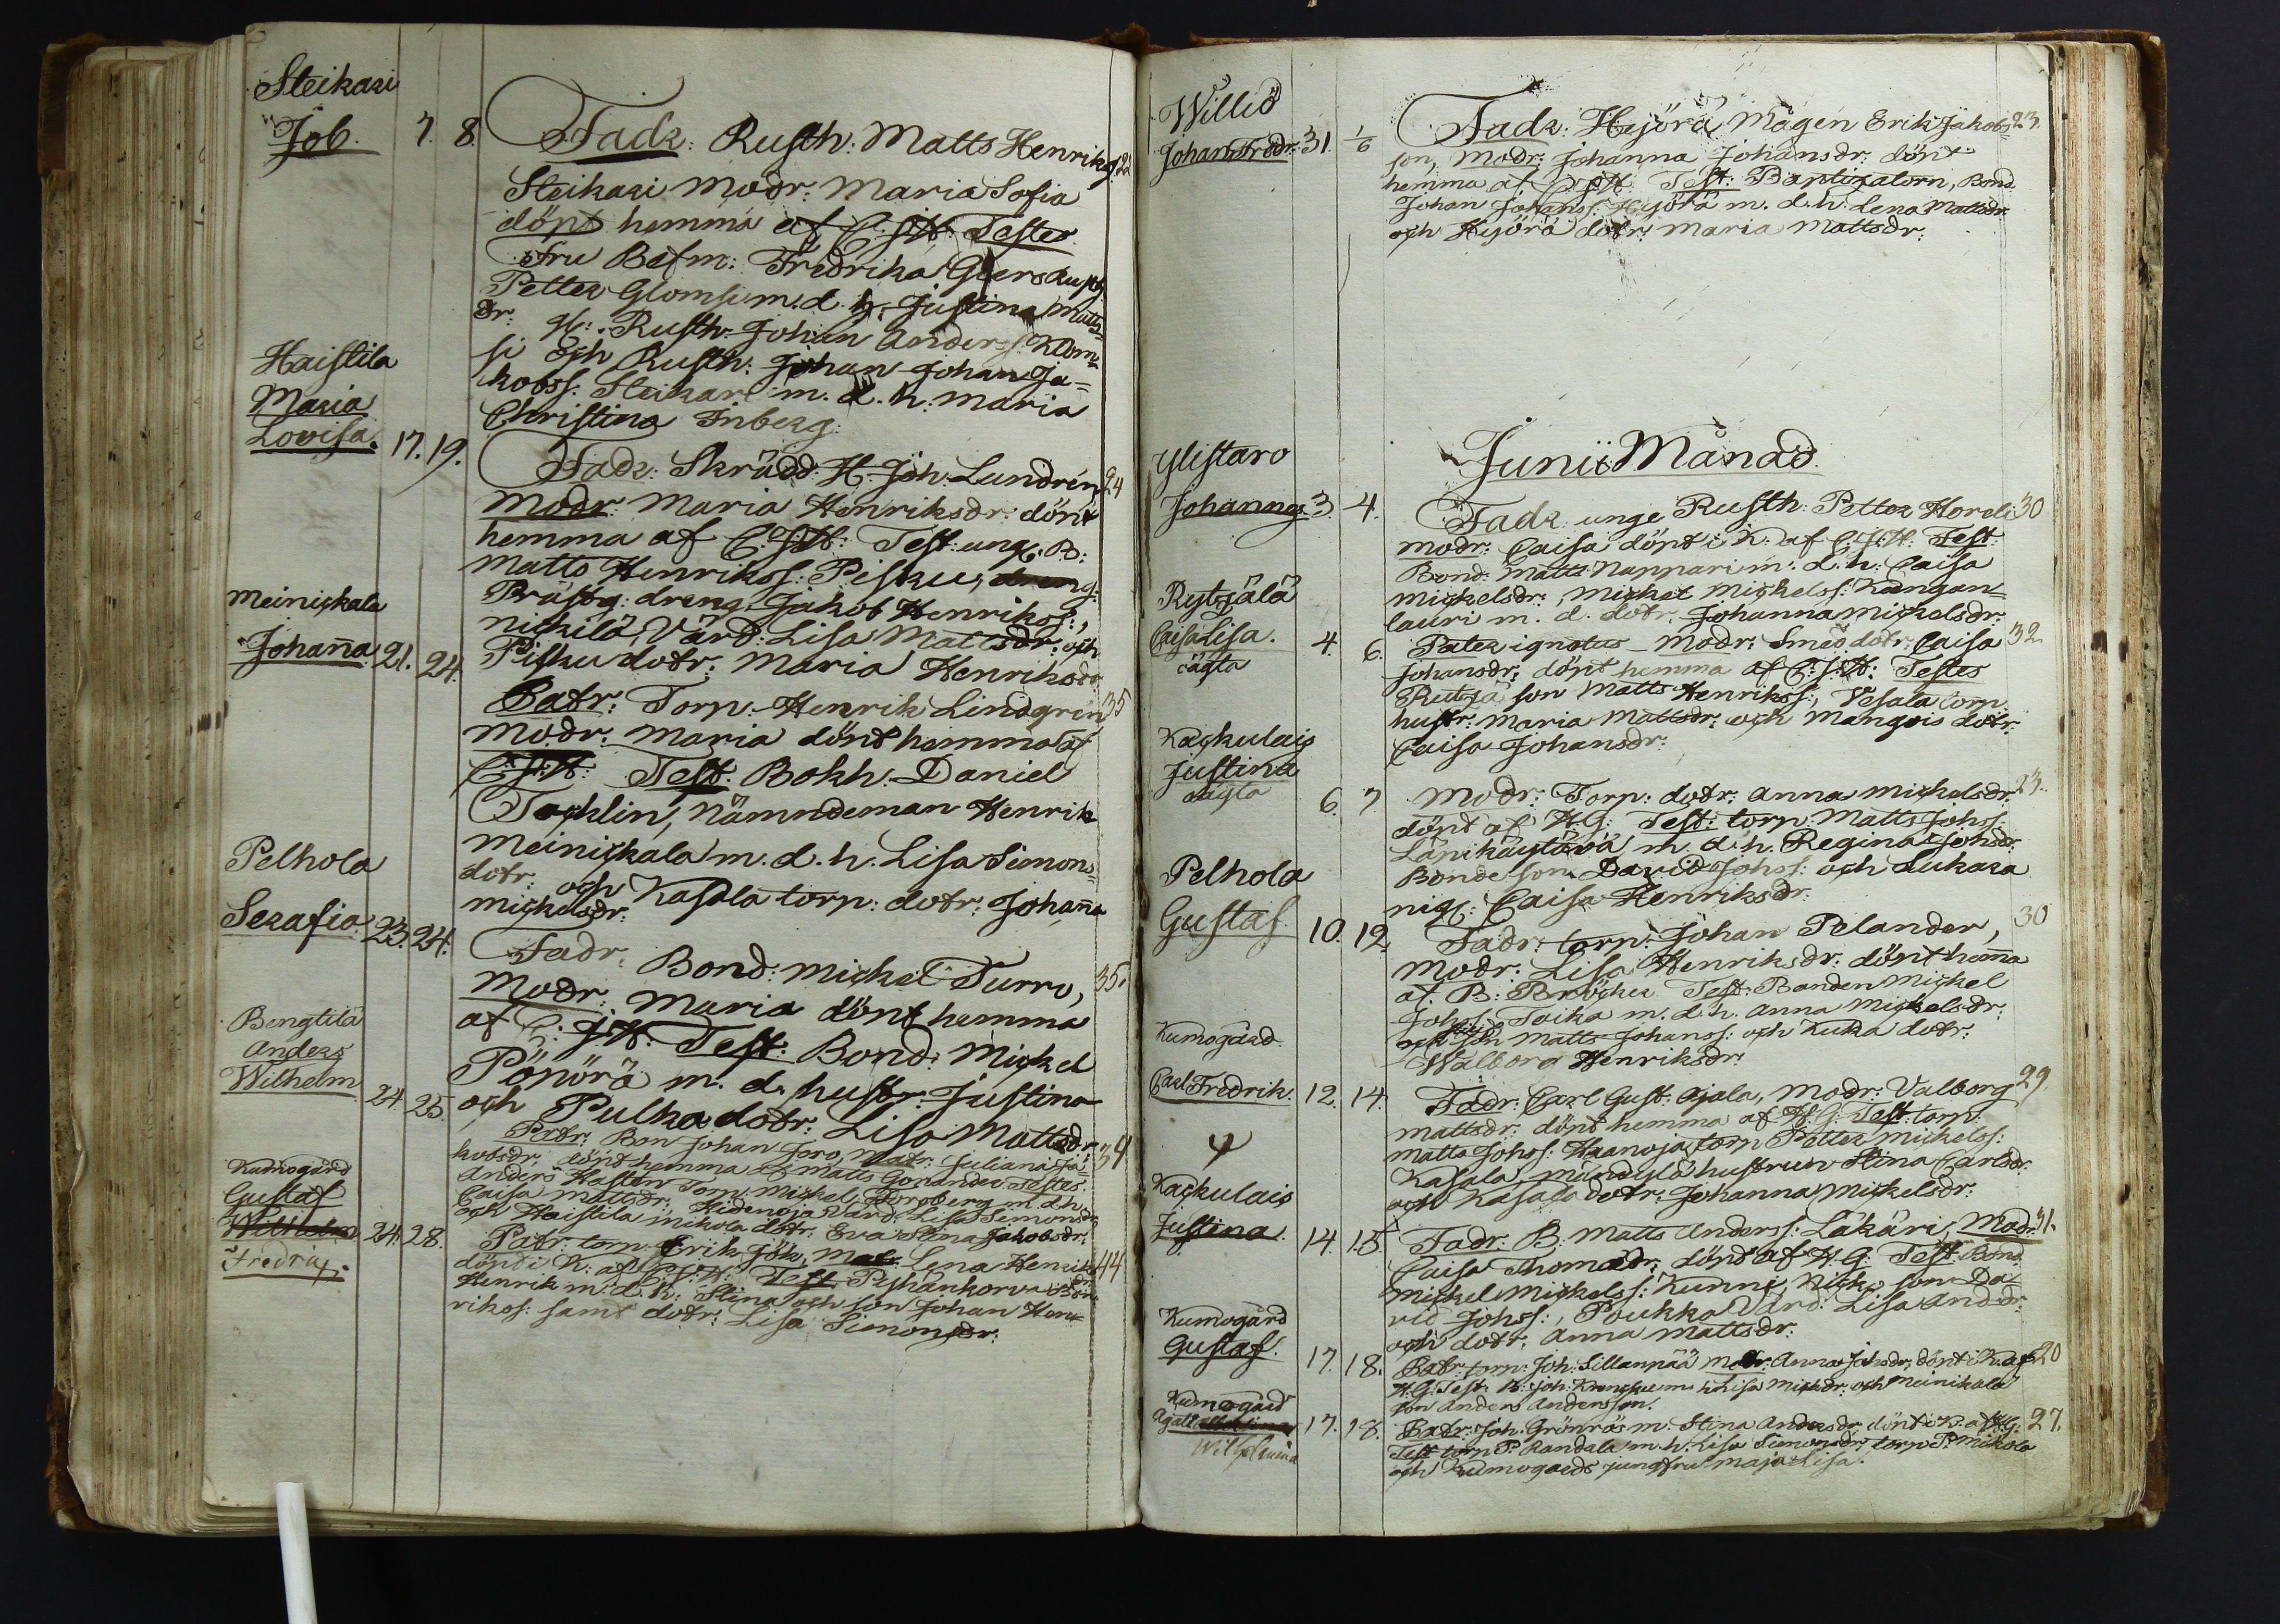 Steikari
Job. 7. 8. Fadr: Rusth: Matts Henrikss. 22
Steikari Modr: Maria Sofia
döpt hemma af C. J. W: Testes
Fru Befm: Fredrika Rusth.
Petter Glomsi m. d. h. Justina Matts
dr: H: Rusth: Johan Anderss. Klom-
si och Rusth: Johan Johan Ja-
kobss. Steikari m. d. h. Maria
Christina Inberg.
Haistila
Maria
Lovisa. 17. 19. Fadr: Skrädd: H. Joh. Lundrén 24
Modr: Maria Henriksdr: döpt
hemma af C. J. W: Test: ung. B:
Matts Henrikss: Pisku,
Präsog: dreng Jakob Henrikss:,
Nickilä Värd: Lisa Mattsdr: och
Pisku dotr: Maria Henriksdr
Meinickala
Johana 21. 24. Patr: Torp: Henrik Lindgren 35
Modr: Maria döpt hemma af
C. J. W: Test. Bokh. Daniel
Tocklin, Nämndeman Henrik
Meinickala m. d. h. Lisa Simons-
dotr: och Kasala torp: dotr: Johana
Mickelsdr:
Pelhola
Serafia. 23. 24. Fadr: Bond: Mickel Turro, 35.
Modr: Maria döpt hemma
af C. J. W: Test: Bond: Mickel
Pönörä m. d. hustr: Justina
och Pulka dotr: Lisa Mattsdr:
Bengtilä
Anders
Wilhelm 24. 25. Patr: Bon Johan Joro, Matr: Juliana Ja- 34
kobsdr, döpt hemma af Matts Gorander Testes
Anders Hasten Torp: Mickel Forsberg m. d. h.
Caisa Mattsdr:, Hidenoja värd: Lisa Simonsdr
och Haistila Mikola dotr: Eva Stina Jakobsdr:
Kumogård
Gustaf
Wilhelm 24. 28. Patr: torp: Erik Jök, Mat: Lena Henriks- 44
Fredrik. döpt i K: af C. J. W: Test: Pishankorva Bon:
Henrik m. d. h: Stina och son Johan Hen-
rikss: samt dotr: Lisa Simonsdr:
Willio
Johan Fredr: 31. 1/6 Fadr: Hejörä Mågen Erik Jakobs- 23.
son, Modr: Johanna Johansdr: döpt
hemma af C. J. W: Test: Baptizatorn, Bond
Johan Johanss: Hyörä m. d. h. Lena Mattsdr:
och Hyörä dotr: Maria Mattsdr:
Junii Månad.
Ylistaro
Johannes 3. 4. Fadr: unge Rusth: Petter Horeli 30
Modr: Caisa döpt i K. af C. J. W: Test:
Bond: Matts Nappari m. d. h: Caisa
Mickelsdr:, Mickel Mickelss: Kangan-
lauri m. d. dotr: Johanna Mickelsdr:
Rytzälä
Caisa Lisa. 4. 6. Pater ignotus – Modr: Smed dotr: Caisa 32.
oägta Johansdr: döpt hemma af C. J. W: Testes
son Matts Henrikss:, Vesala torp:
hustr: Maria Mattsdr: och Mangois dotr:
Caisa Johansdr:
Kackulais
Justina
oägta 6. 7. Modr: Torp: dotr: Anna Mickelsdr: 23.
döpt af H.G: Test: torp: Matts Johss:
Länikäytävä m. d. h. Regina Johsdr:
Bonde son David Johss: och Lukara
pig: Caisa Henriksdr:
Pelhola
Gustaf 10. 12. Fadr: torp: Johan Pelander, 30
Modr: Lisa Henriksdr: döpt hema
af B: Test: Bonden Mickel
Johss: Toika m. d. h. Anna Mickelsdr:
och son Matts Johanss: och Kuka dotr:
Walborg Henriksdr:
Kumogård
Carl Fredrik. 12. 14. Fadr: Carl Gust: Ojala, Modr: Valborg 29.
Mattsdr: döpt hemma af H.G: Test: torp:
Matts Johss: Haanoja, torp Petter Mickelss:
Kasala, hustrun Stina Carlsdr:
och Kasala dotr: Johanna Mickelsdr:
Kackulais
Justina. 14. 15. Fadr: B: Matts Anderss: Läkäri, Modr: 31.
Caisa Thomasdr: döpt af H.G: Test: Bond
Mickel Mickelss: Kunni, Nick: son Da-
vid Johss:, Poukka Värd: Lisa Andsdr:
och dotr: Anna Mattsdr:
Kumogård
Gustaf. 17. 18. Patr: torp: Joh: Sillanpää Modr: Anna Johsdr, döpt i K. af 20
H.G. Test: Joh: m. h. Lisa Mickdr: och Meinikala
son Anders Andersson.
Kumogård
Agata 17. 18. Patr: Joh: Grönroos m. Stina Andersdr döpt i K. af H.G: 27.
Wilhelmina Test: torp P: Randala m. h. Lisa Simonsdr: torp P. Mikola
och Kumogårds jungfru Maja Lisa.